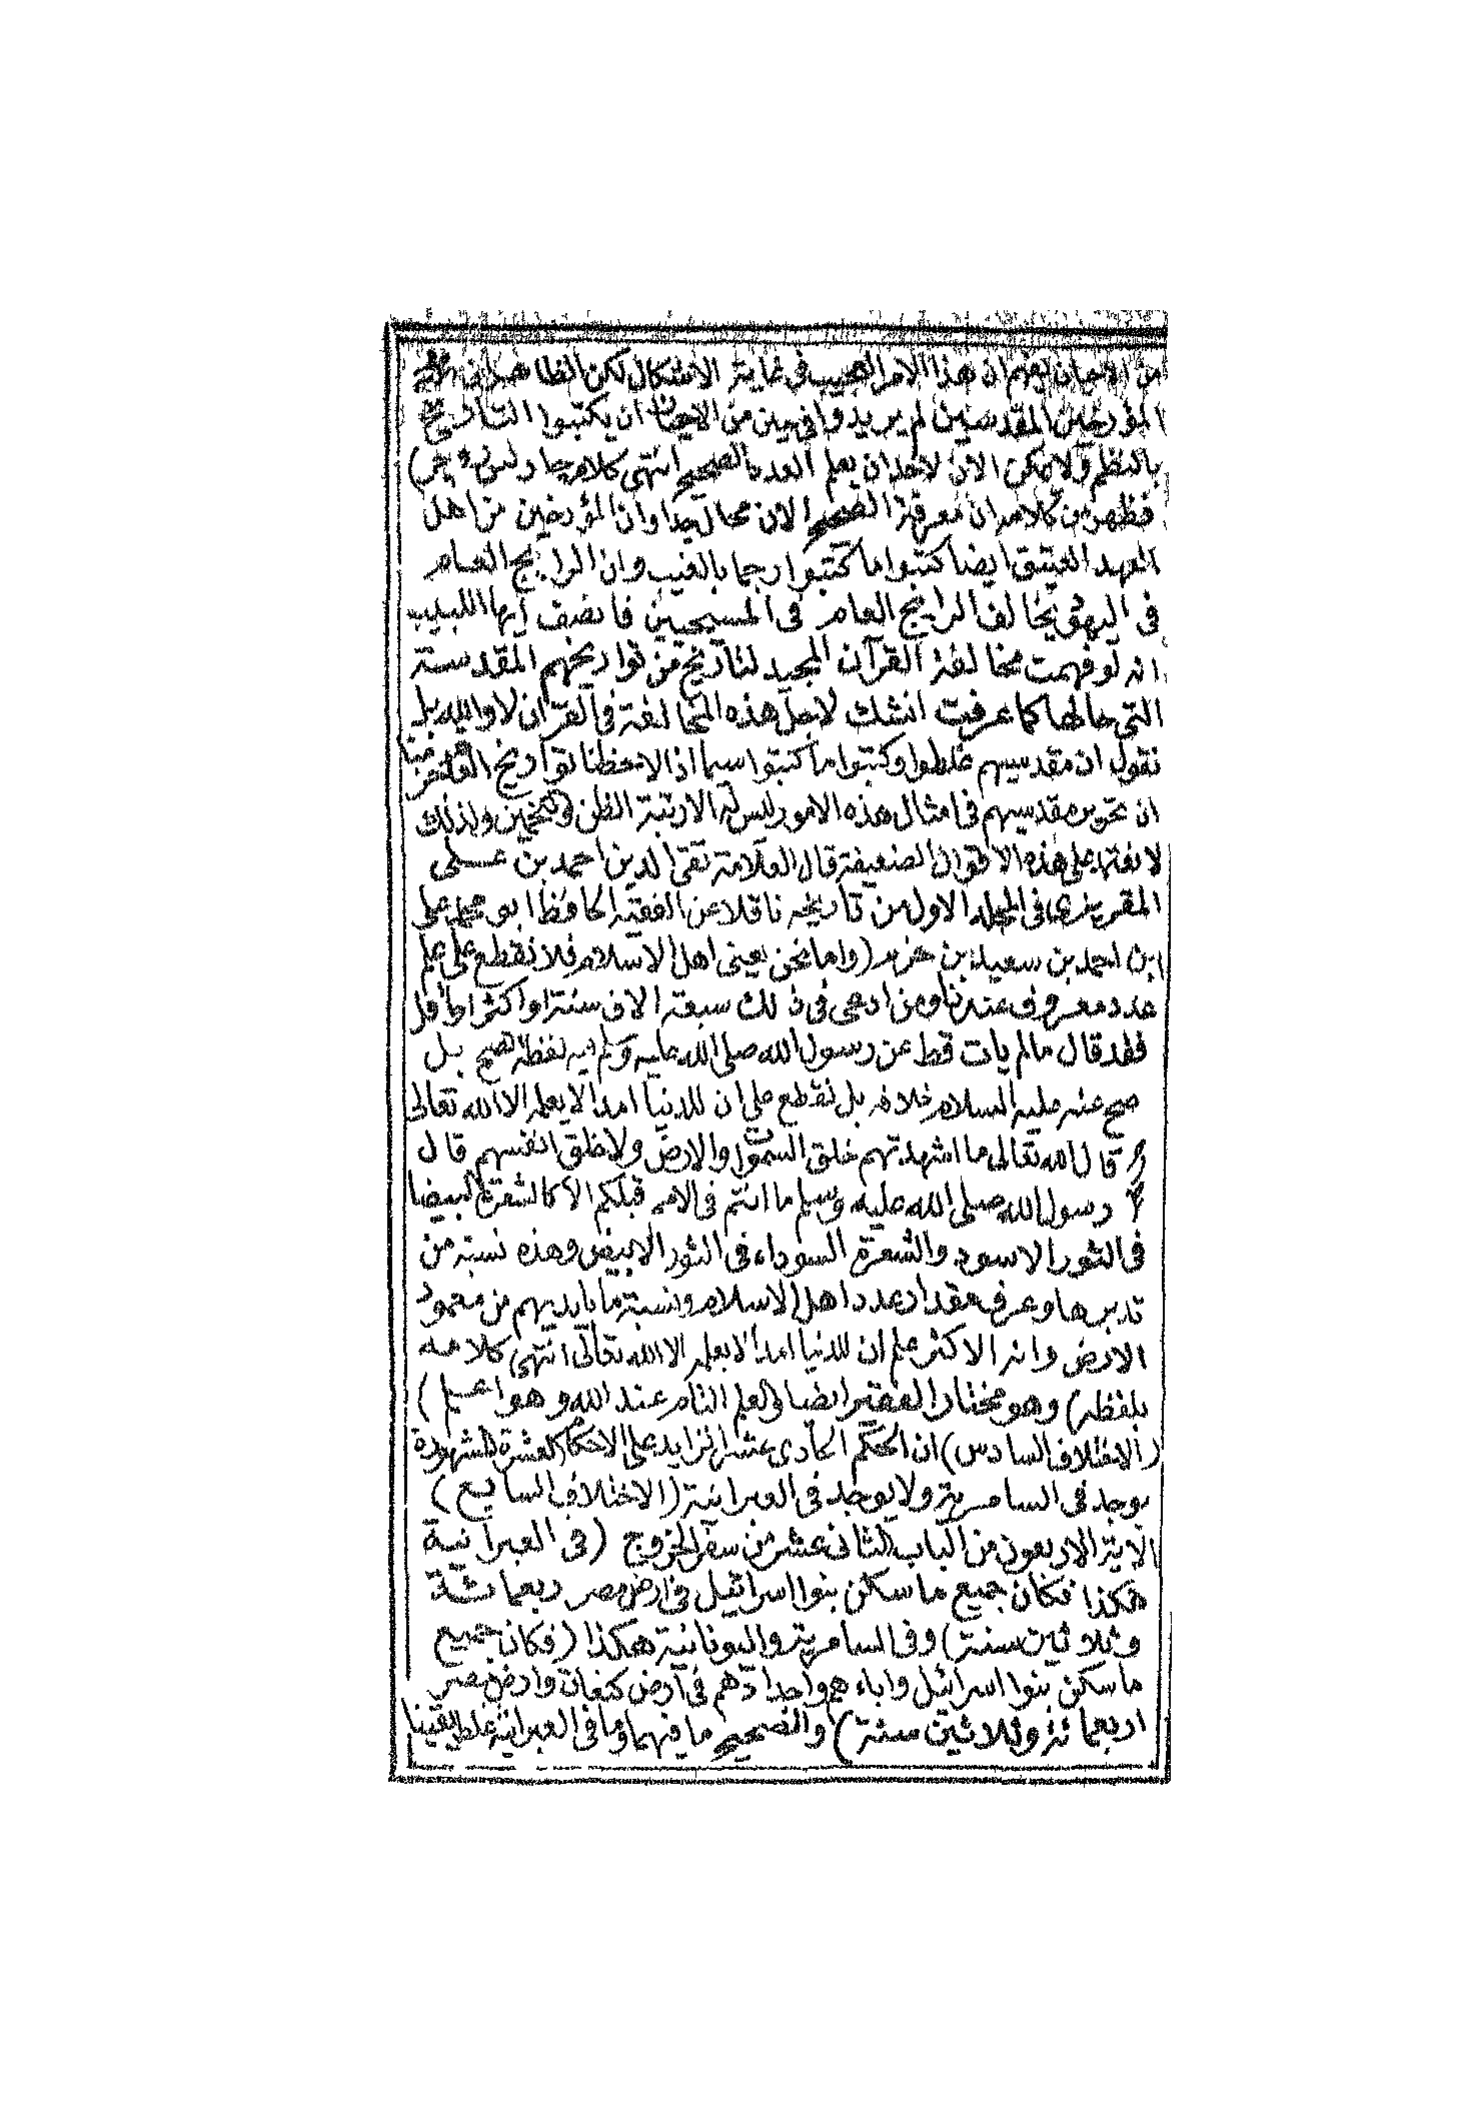 من الاحيان يفهم ان هذا الامر العجيب فى غاية الاشكال لكن الظاهر ان
المؤرخين المقدسيين لم يريدوا فى حين من الاحيان ان يكتبوا التاريخ
بالنظم ولا يمكن الان لاحد ان يعلم العدد الصحيح انتهى كلام چارلس روجر)
فظهر من كلامه ان معرفة الصحيح الان محال جدا وان المؤرخين من اهل
العهد العتيق ايضا كتبوا ما كتبوا رجما بالغيب وان الرايج العام
فى اليهود يخالف الرايج العام فى المسيحيين فانصف ايها اللبيب
انه لو فهمت مخالفة القرآن المجيد لتاريخ من تواريخهم المقدسة
التى حالها كما عرفت انشك لاجل هذه المخالفة فى القرآن لا والله بل
نقول ان مقدسيهم غلطوا وكتبوا ما كتبوا سيما اذا لاحظنا تواريخ العالم جزمنا
ان تحرير مقدسيهم فى امثال هذه الامور ليس له الا رتبة الظن والتخمين ولذلك
لا نعتمد على هذه الاقوال الضعيفة قال العلامة تقى الدين احمد بن عـلى
المقريزى فى المجلد الاول من تاريخه ناقلا عن الفقيه الحافظ ابو محمد على
ابن احمد بن سعيد بن حزم (واما نحن يعنى اهل الاسلام فلا نقطع على علم
عدد معروف عندنا ومن ادعى فى ذلك سبعة الاف سنة او اكثر او اقل
فقد قال ما لم يات قط عن رسول الله صلى الله عليه وسلم فيه لفظة تصح بـل
صح عنه عليه السلام خلافه بل نقطع على ان للدنيا امدا لا يعلمه الا الله تعالى
قال الله تعالى ما اشهدتهم خلق السموات والارض ولا خلق انفسهم قال
رسول الله صلى الله عليه وسلم ما انتم فى الامم قبلكم الا كالشعرة البيضا
فى الثور الاسود والشعرة السوداء فى الثور الابيض وهذه نسبة من
تدبرها وعرف مقدار عدد اهل الاسلام ونسبة ما بايديهم من معمور
الارض وانه الاكثر علم ان للدنيا امدا لا يعلمه الا الله تعالى انتهى كلامه
بلفظه) وهو مختار الفقير ايضا والعلم التام عند الله وهو اعـلم)
(الاختلاف السادس) ان الحكم الحادى عشر الزايد على الاحكام العشرة المشهورة
يوجد فى السامرية ولا يوجد فى العبرانية (الاختلاف السابع)
الاية الاربعون من الباب الثانى عشر من سفر الخروج (فى العبرانية
هكذا فكان جميع ما سكن بنوا اسرائيل فى ارض مصر ربعمائة
وثلاثين سنة) وفى السامرية واليونانية هكذا (فكان جميع
ما سكن بنوا اسرائيل واباءهم واجدادهم فى ارض كنعان وارض مصر
اربعمائة وثلاثين سنة) والصحيح ما فيهما وما فى العبرانية غلط يقينا